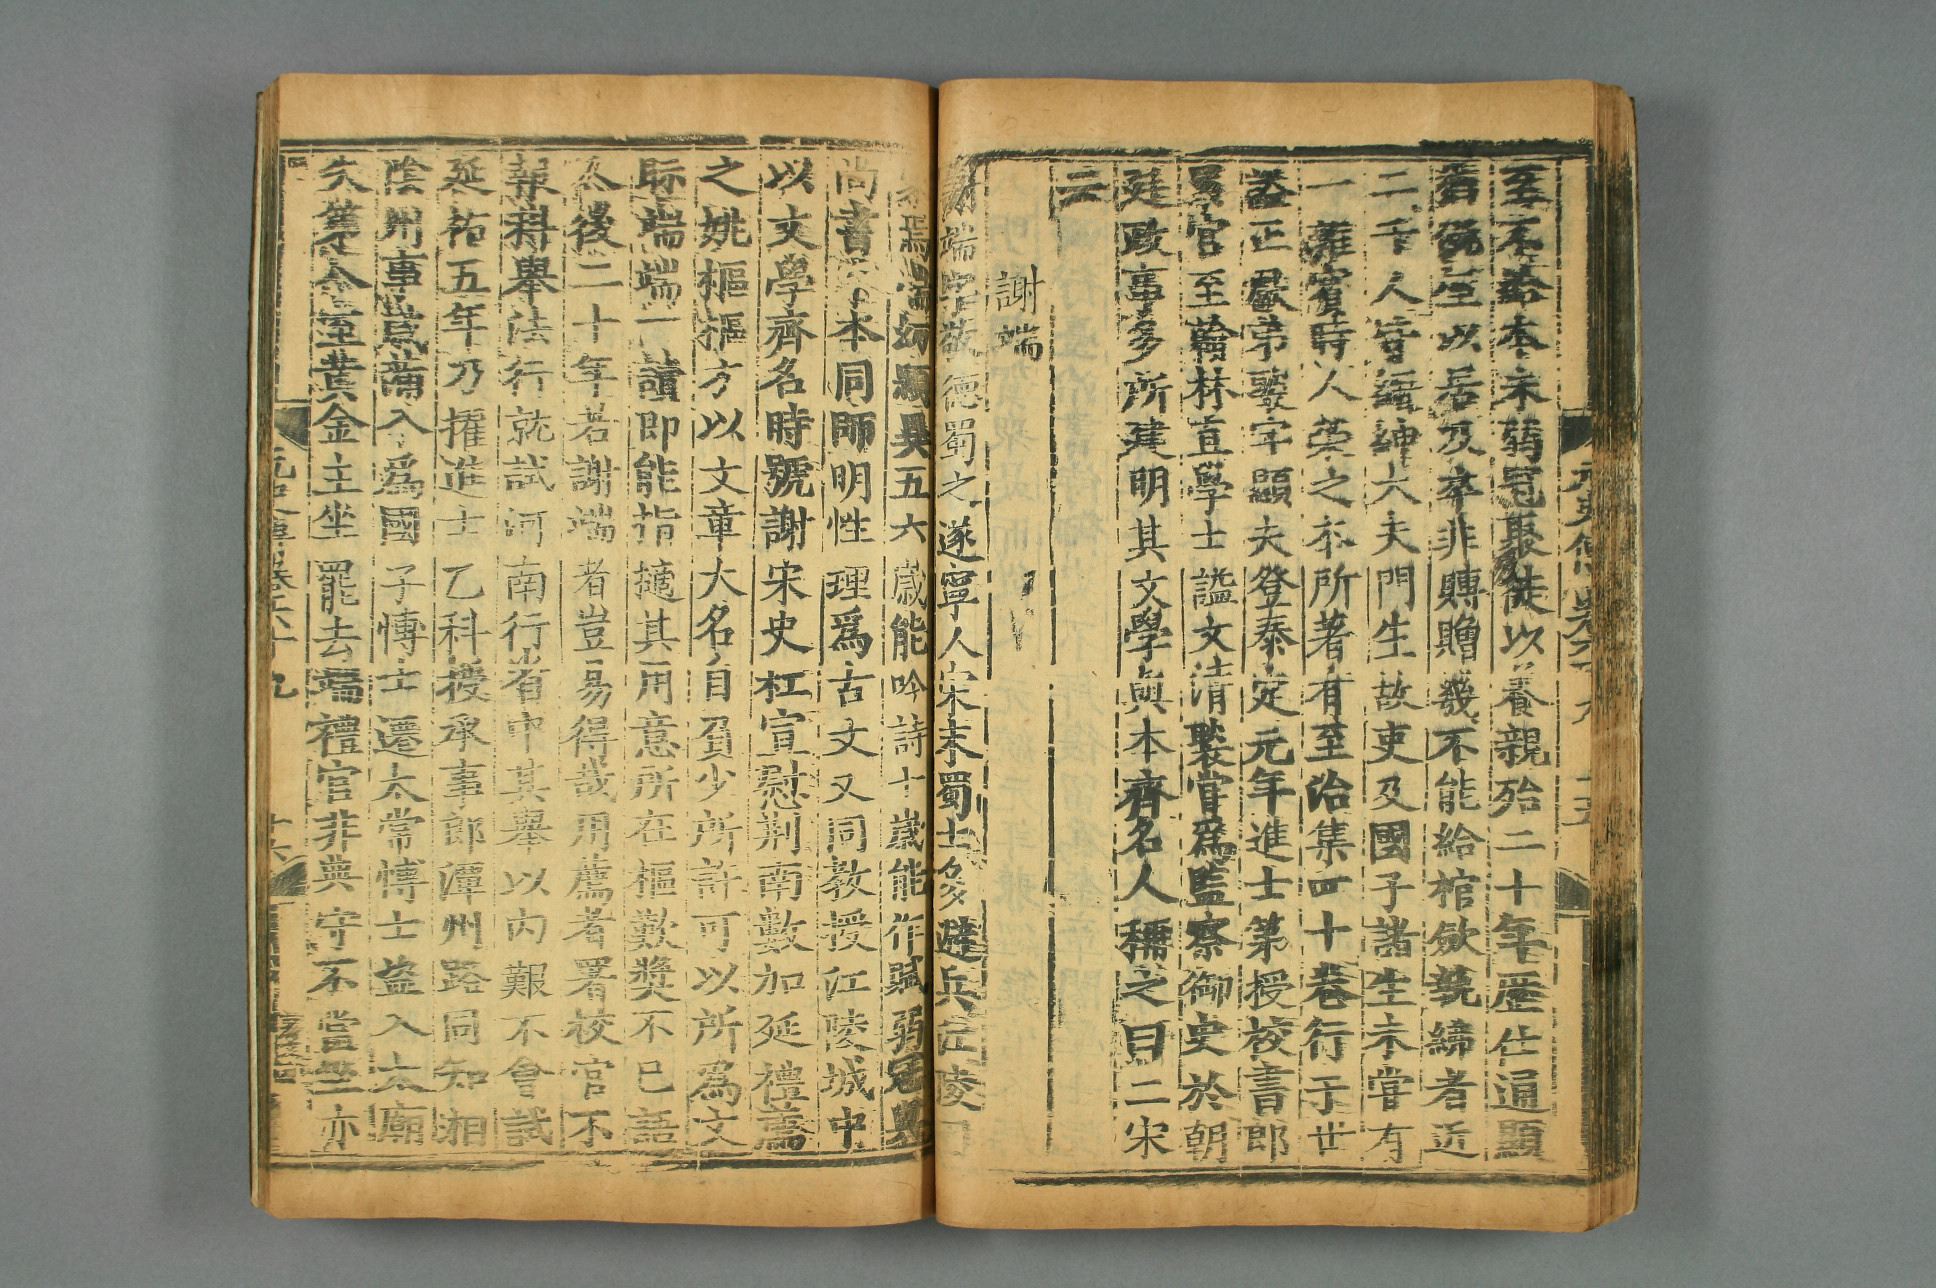 至不給本未弱冠聚徒以養親殆二十年歷仕通顯
猶僦屋以居及卒非賻贈幾不能給棺斂執紼者近
二千人皆縉紳大夫門生故吏及國子諸生未嘗有
一雜賓時人榮之本所著有至治集四十卷行于世
謚正獻弟褧字顯夫登泰定元年進士第授校書郎
累官至翰林直學士謚文清褧嘗爲監察御史於朝
廷政事多所建明其文學與本齊名人稱之曰二宋
云
謝端
謝端字敬德蜀之遂寧人宋末蜀士多避兵江陵
家焉端幼穎異五六歲能吟詩十歲能作賦弱冠與
尚書宋本同師明性理爲古文又同教授江陵城中
以文學齊名時號謝宋史杠宣慰荆南數加延禮薦
之姚樞樞方以文章大名自負少所許可以所爲文
眎端端一讀即能指擿其用意所在樞歎獎不已語
人後二十年若謝端者豈易得哉用薦者署校官不
報科舉法行就試河南行省中其舉以內艱不會試
延祐五年乃擢進士乙科授承事郎潭州路同知湘
陰州事歲滿入爲國子博士遷太常博士盜入太廟
失第八室黃金主坐罷去端禮官非典守不當坐亦
元史傳卷六十九 十六